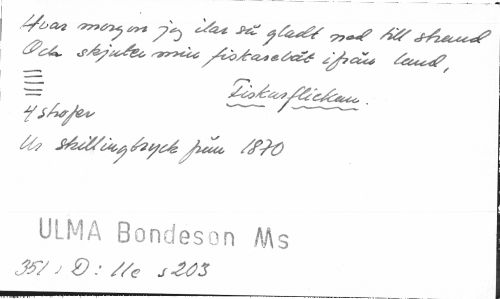 Hvar morgon jag ilar så gladt ned till strand
Och skjuter min fiskarebåt ifrån land,
Fiskarflickan.
4 strofer
Ur skillingtryck från 1870
ULMA Bondeson Ms
351, D: 11e s 203